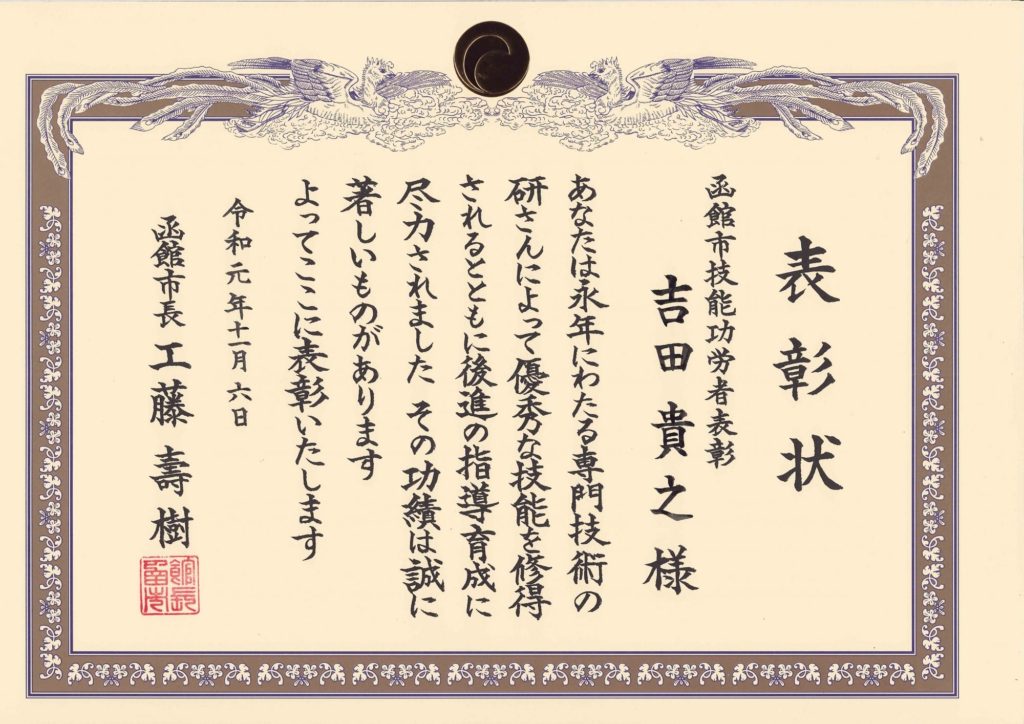 表彰状
函館市技能功労者表彰
吉田貴之様
あなたは永年にわたる専門技術の
研さんによって優秀な技能を修得
されるとともに後進の指導育成に
尽力されました その功績は誠に
著しいものがあります
よってここに表彰いたします
令和元年十一月六日
函館市長 工藤壽樹